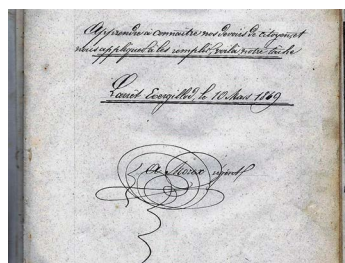 Apprendre à connaître nos devoirs de citoyen, et
nous appliquer à les remplir, voilà notre tâche
Lanët le 10 Mars 1869
A.